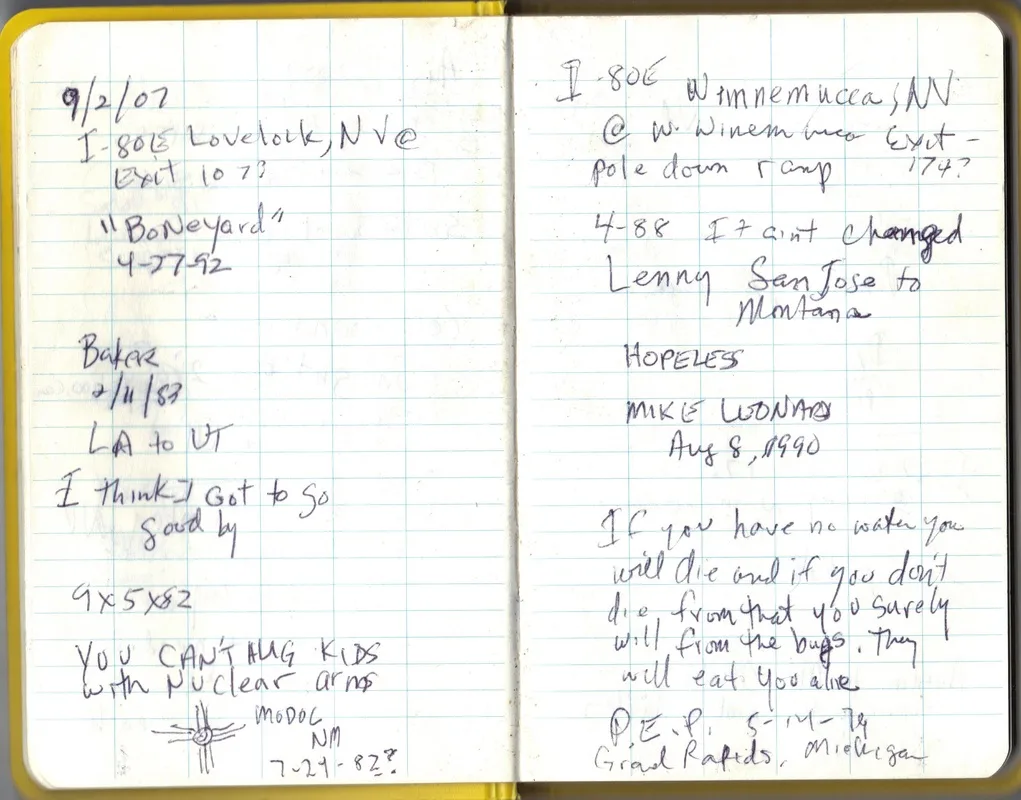 9/2/07
I-80E Lovelock, NV @
Exit 107?
"BoNeyard"
4-27-92
Baker
2/11/83
LA to UT
I think I Got to go
good by
9x5x82
YOU CAN'T HUG KIDS
with Nuclear arms
MODOC
NM
7-29-82?
I-80E Winnemucca, NV
@ W. Winemucca Exit -
pole down ramp 174?
4-88 It aint changed
Lenny San Jose to
Montana
HOPELESS
MIKE LEONARD
Aug 8, 1990
If you have no water you
will die and if you don't
die from that you surely
will from the bugs. They
will eat you alive
P.E.P. 5-14-79
Grad Rapids, Michigan